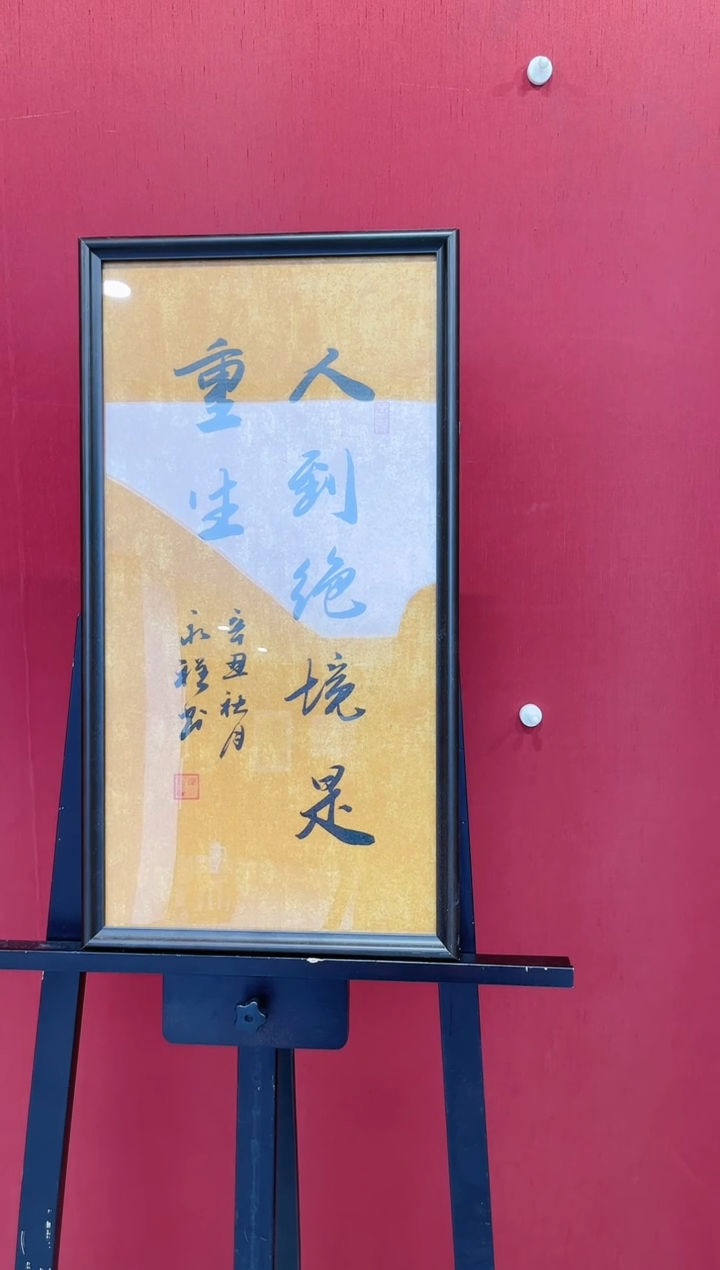 人到绝境是
重生
辛丑社月
永程书